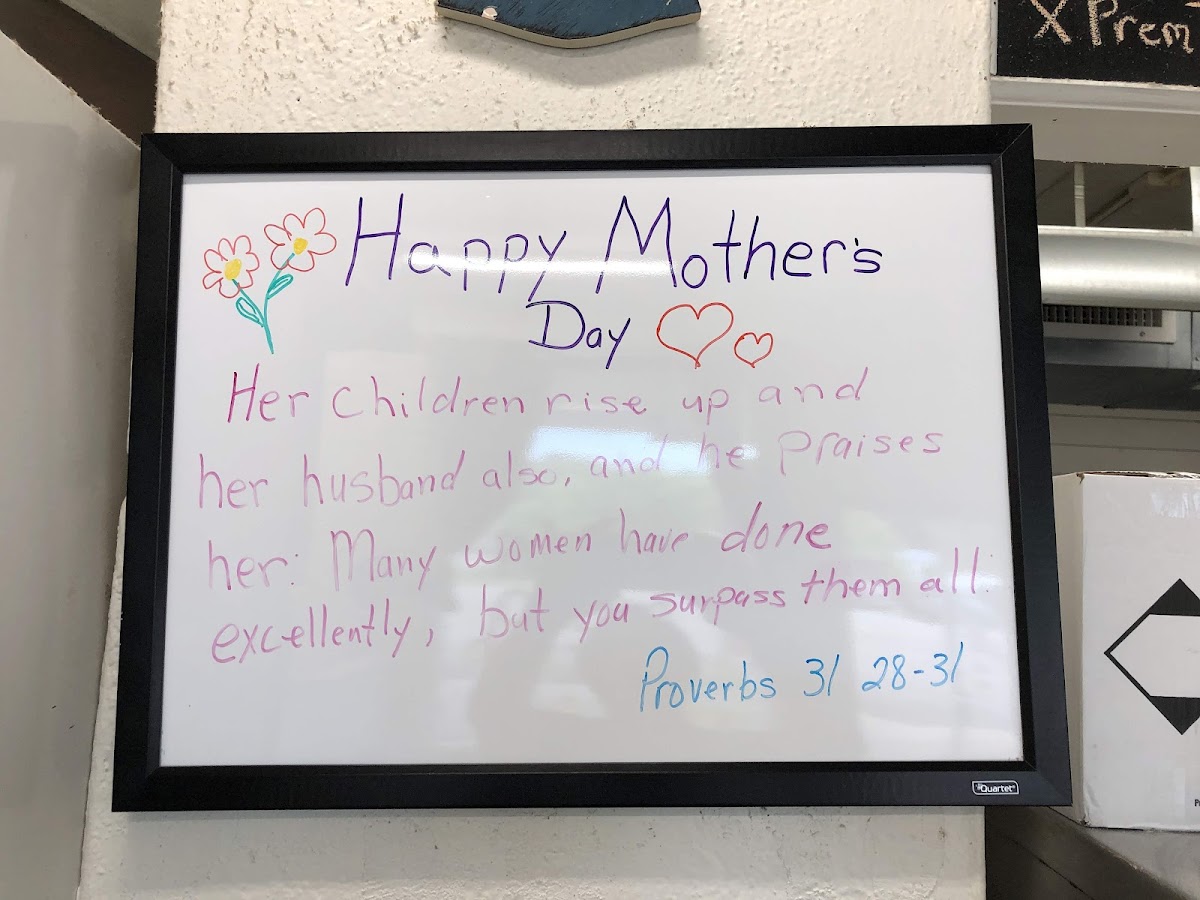 X Prem
Happy Mother's
Day
Her children rise up and
her husband also, and he praises
her: Many women have done
excellently, but you surpass them all.
Proverbs 31 28-31
Quartet